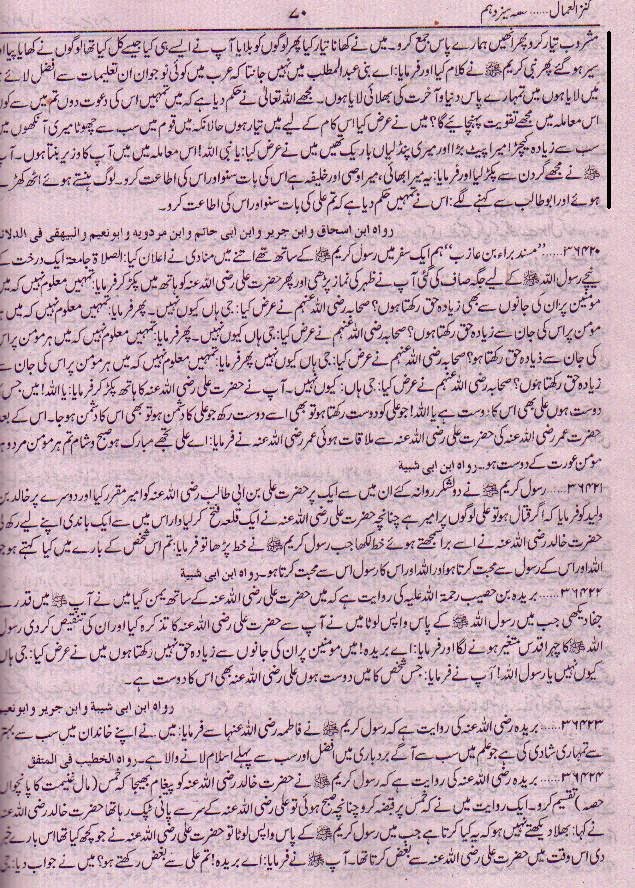 کنز العمال ...... حصہ سیزدہم ۷۰
مشروب تیار کرو پھر انھیں ہمارے پاس جمع کرو۔ میں نے کھانا تیار کیا پھر لوگوں کو بلایا آپ نے ایسے ہی کیا جیسے کل کیا تھا لوگوں نے کھایا پیا اور
سیر ہو گئے پھر نبی کریم ﷺ نے کلام کیا اور فرمایا: اے بنی عبدالمطلب میں نہیں جانتا کہ عرب میں کوئی نوجوان ان تعلیمات سے افضل لائے ہوں
میں لایا ہوں میں تمہارے پاس دنیا و آخرت کی بھلائی لایا ہوں۔ مجھے اللہ تعالیٰ نے حکم دیا ہے کہ میں تمہیں اس کی دعوت دوں تم میں سے کون
اس معاملہ میں مجھے تقویت پہنچائے گا؟ میں نے عرض کیا اس کام کے لیے میں تیار ہوں حالانکہ میں قوم میں سب سے چھوٹا میری آنکھوں میں
سب سے زیادہ کیچڑ! میرا پیٹ بڑا اور میری پنڈلیاں باریک تھیں میں نے عرض کیا: یا نبی اللہ! اس معاملہ میں میں آپ کا وزیر بنتا ہوں۔ آپ
ﷺ نے مجھے گردن سے پکڑ لیا اور فرمایا: یہ میرا بھائی، میرا وصی اور خلیفہ ہے اس کی بات سنو اور اس کی اطاعت کرو۔ لوگ ہنستے ہوئے اٹھ کھڑے
ہوئے اور ابو طالب سے کہنے لگے: اس نے تمہیں حکم دیا ہے کہ تم علی کی بات سنو اور اس کی اطاعت کرو۔
رواہ ابن اسحاق وابن جریر وابن ابی حاتم وابن مردویہ وابو نعیم والبیہقی فی الدلائل
۳۶۴۲۰...... ”مسند براء بن عازب“ ہم ایک سفر میں رسول کریم ﷺ کے ساتھ تھے اتنے میں منادی نے اعلان کیا: الصلاة جامعة ایک درخت کے
نیچے رسول اللہ ﷺ کے لیے جگہ صاف کی گئی آپ نے ظہر کی نماز پڑھی اور پھر حضرت علی رضی اللہ عنہ کو ہاتھ میں پکڑ کر فرمایا: تمہیں معلوم نہیں کہ میں
مومنین پر ان کی جانوں سے بھی زیادہ حق رکھتا ہوں؟ صحابہ رضی اللہ عنہم نے عرض کیا: جی ہاں کیوں نہیں۔ پھر فرمایا: تمہیں معلوم نہیں کہ میں ہر
مومن پر اس کی جان سے زیادہ حق رکھتا ہوں؟ صحابہ رضی اللہ عنہم نے عرض کیا: جی ہاں کیوں نہیں۔ پھر فرمایا: تمہیں معلوم نہیں کہ میں ہر مومن پر اس
کی جان سے زیادہ حق رکھتا ہوں؟ صحابہ رضی اللہ عنہم نے عرض کیا: جی ہاں کیوں نہیں پھر فرمایا: تمہیں معلوم نہیں کہ میں ہر مومن پر اس کی جان سے
زیادہ حق رکھتا ہوں؟ صحابہ رضی اللہ عنہم نے عرض کیا: جی ہاں: کیوں نہیں۔ آپ نے حضرت علی رضی اللہ عنہ کا ہاتھ پکڑ کر فرمایا: یا اللہ! میں جس کا
دوست ہوں علی بھی اس کا دوست ہے یا اللہ! جو علی کو دوست رکھتا ہو تو بھی اسے دوست رکھ جو علی کا دشمن ہو تو بھی اس کا دشمن ہو جا۔ اس کے بعد
حضرت عمر رضی اللہ عنہ کی حضرت علی رضی اللہ عنہ سے ملاقات ہوئی عمر رضی اللہ عنہ نے فرمایا: اے علی تجھے مبارک ہو صبح و شام تم ہر مومن مرد و
مومن عورت کے دوست ہو۔ رواہ ابن ابی شیبة
۳۶۴۲۱...... رسول کریم ﷺ نے دو لشکر روانہ کئے ان میں سے ایک پر حضرت علی بن ابی طالب رضی اللہ عنہ کو امیر مقرر کیا اور دوسرے پر خالد بن
ولید کو فرمایا کہ اگر قتال ہو تو علی لوگوں پر امیر ہے چنانچہ حضرت علی رضی اللہ عنہ نے ایک قلعہ فتح کر لیا اور اس میں سے ایک باندی اپنے لیے رکھ لی
حضرت خالد رضی اللہ عنہ نے اسے برا سمجھتے ہوئے خط لکھا جب رسول کریم ﷺ نے خط پڑھا تو فرمایا: تم اس شخص کے بارے میں کیا کہتے ہو جو
اللہ اور اس کے رسول سے محبت کرتا ہو اور اللہ اور اس کا رسول اس سے محبت کرتا ہو۔ رواہ ابن ابی شیبة
۳۶۴۲۲...... بریدہ بن حصیب رحمۃ اللہ علیہ کی روایت ہے کہ میں حضرت علی رضی اللہ عنہ کے ساتھ یمن گیا میں نے آپ ﷺ میں قدرے
جفا دیکھی جب میں رسول اللہ ﷺ کے پاس واپس لوٹا میں نے آپ سے حضرت علی رضی اللہ عنہ کا تذکرہ کیا اور ان کی تنقیص کر دی رسول
اللہ ﷺ کا چہرا اقدس متغیر ہونے لگا اور فرمایا: اے بریدہ! میں مومنین پر ان کی جانوں سے زیادہ حق نہیں رکھتا ہوں میں نے عرض کیا: جی ہاں
کیوں نہیں یا رسول اللہ! آپ نے فرمایا: جس شخص کا میں دوست ہوں علی رضی اللہ عنہ بھی اس کا دوست ہے۔
رواہ ابن ابی شیبة وابن جریر وابو نعیم
۳۶۴۲۳...... بریدہ رضی اللہ عنہ کی روایت ہے کہ رسول کریم ﷺ نے فاطمہ رضی اللہ عنہا سے فرمایا: میں نے اپنے خاندان میں سب سے بہتر
سے تمہاری شادی کی ہے جو علم میں سب سے آگے بردباری میں افضل اور سب سے پہلے اسلام لانے والا ہے۔ رواہ الخطیب فی المتفق
۳۶۴۲۴...... بریدہ رضی اللہ عنہ کی روایت ہے کہ رسول کریم ﷺ نے حضرت خالد رضی اللہ عنہ کو پیغام بھیجا کہ خمس (مال غنیمت کا پانچواں
حصہ) تقسیم کرو۔ ایک روایت میں نے کہ خمس پر قبضہ کرو چنانچہ صبح ہوئی تو علی رضی اللہ عنہ کے سر سے پانی ٹپک رہا تھا حضرت خالد رضی اللہ عنہ
نے کہا: بھلا دیکھتے نہیں ہو کہ یہ کیا کرتا ہے جب میں رسول کریم ﷺ کے پاس واپس لوٹا تو حضرت علی رضی اللہ عنہ نے جو کچھ کیا تھا اس بارے خبر
دی اس وقت میں حضرت علی رضی اللہ عنہ سے بغض کرتا تھا۔ آپ ﷺ نے فرمایا: اے بریدہ! تم علی سے بغض رکھتے ہو؟ میں نے جواب دیا: جی